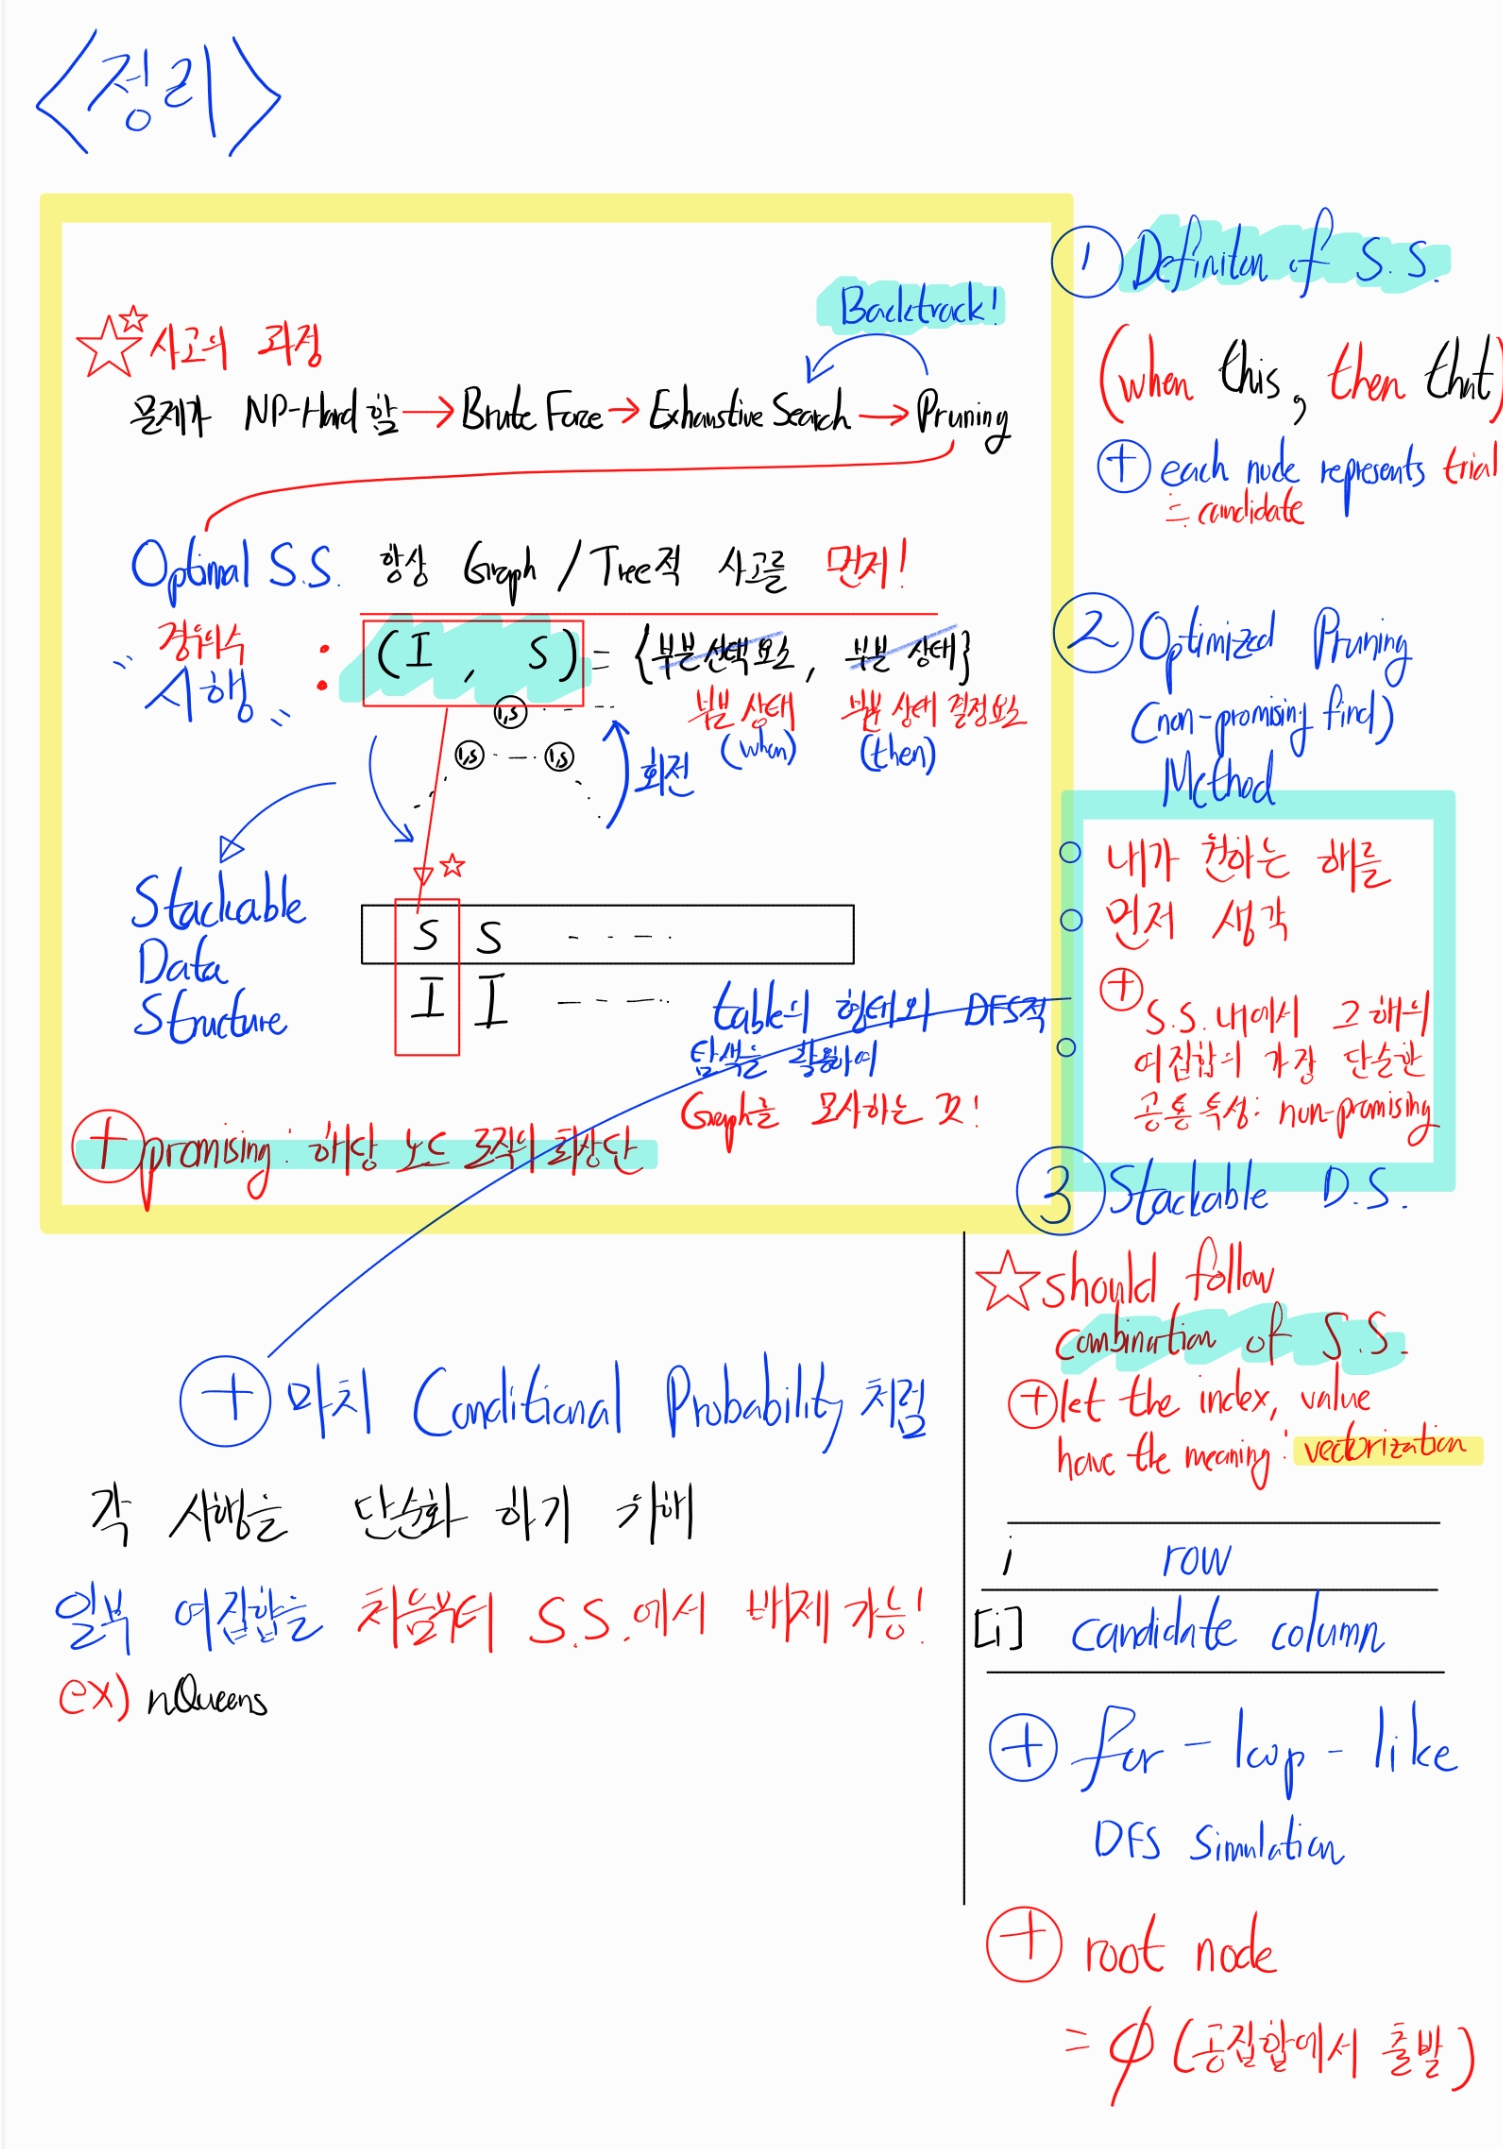 <정리>
☆☆ 사고의 과정
Backtrack!
문제가 NP-Hard 함 → Brute Force → Exhaustive Search → Pruning
Optimal S.S. 항상 Graph / Tree적 사고를 먼저!
경우의 수
"시행" : (I, S) = {부분 선택 요소, 부분 상태}
부분 상태 부분 상태 결정요소
(when) (then)
I,S - - - -
I,S - — - I,S
회전
Stackable
Data
Structure
☆
S S - - - -
I I - - - -
table의 형태와 DFS적
탐색을 활용하여
Graph를 모사하는 것!
⊕ promising : 해당 노드 로직의 최상단
⊕ 마치 Conditional Probability 처럼
각 시행을 단순화 하기 위해
일부 여집합을 처음부터 S.S.에서 배제 가능!
ex) nQueens
① Definiton of S.S.
(when this, then that)
⊕ each node represents trial
= candidate
② Optimized Pruning
(non-promising find)
Method
○ 내가 원하는 해를
○ 먼저 생각
⊕ S.S. 내에서 그 해의
○ 여집합의 가장 단순한
공통 특성: non-promising
③ Stackable D.S.
☆ should follow
combination of S.S.
⊕ let the index, value
have the meaning : vectorization
i row
[i] candidate column
⊕ for - loop - like
DFS Simulation
⊕ root node
= ∅ (공집합에서 출발)